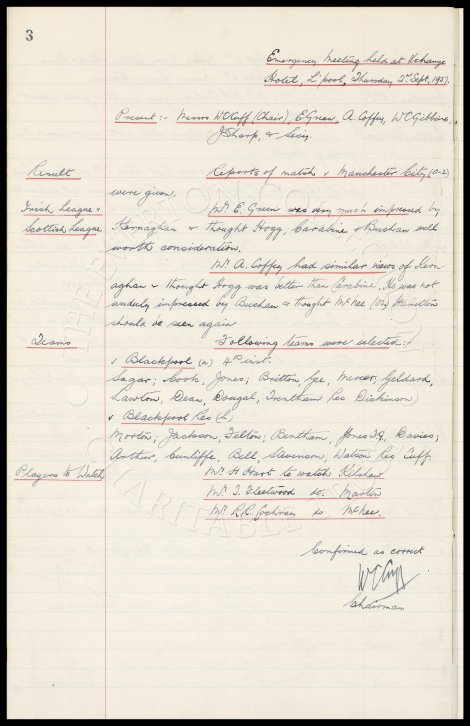 3
Emergency Meeting held at Xchange
Hotel, L'pool, Thursday 2nd Sept, 1937.
Present :- Messrs W C Cuff (Chair), E Green, A. Coffey, W C Gibbins,
J Sharp, & Secy.
Result
Reports of match v Manchester City (0-2)
were given.
Irish League v
Scottish League
Mr. E. Green was very much impressed by
Kernaghan & thought Hogg, Carabine & Buchan well
worth consideration.
Mr. A. Coffey had similar views of Kern-
aghan & thought Hogg was better than Carabine. He was not
unduly impressed by Buchan & thought McNee (OL) Hamilton
should be seen again
Teams
Following teams were selected:-
v Blackpool (a) 4th inst.
Sagar; Cook, Jones; Britton, Gee, Mercer; Geldard,
Lawton, Dean, Dougal, Trentham Res Dickinson
v Blackpool Res (h)
Morton; Jackson, Felton; Bentham, Jones T.G, Davies;
Arthur, Cunliffe, Bell, Stevenson, Watson Res Tuff.
Players to Watch
Mr. H Hart to watch Kilshaw
Mr. T. Fleetwood do. Martin
Mr. R.R. Cochran do McNee.
Confirmed as correct
W C Cuff
Chairman
THE EVERTON COLLECTION
CHARITABLE